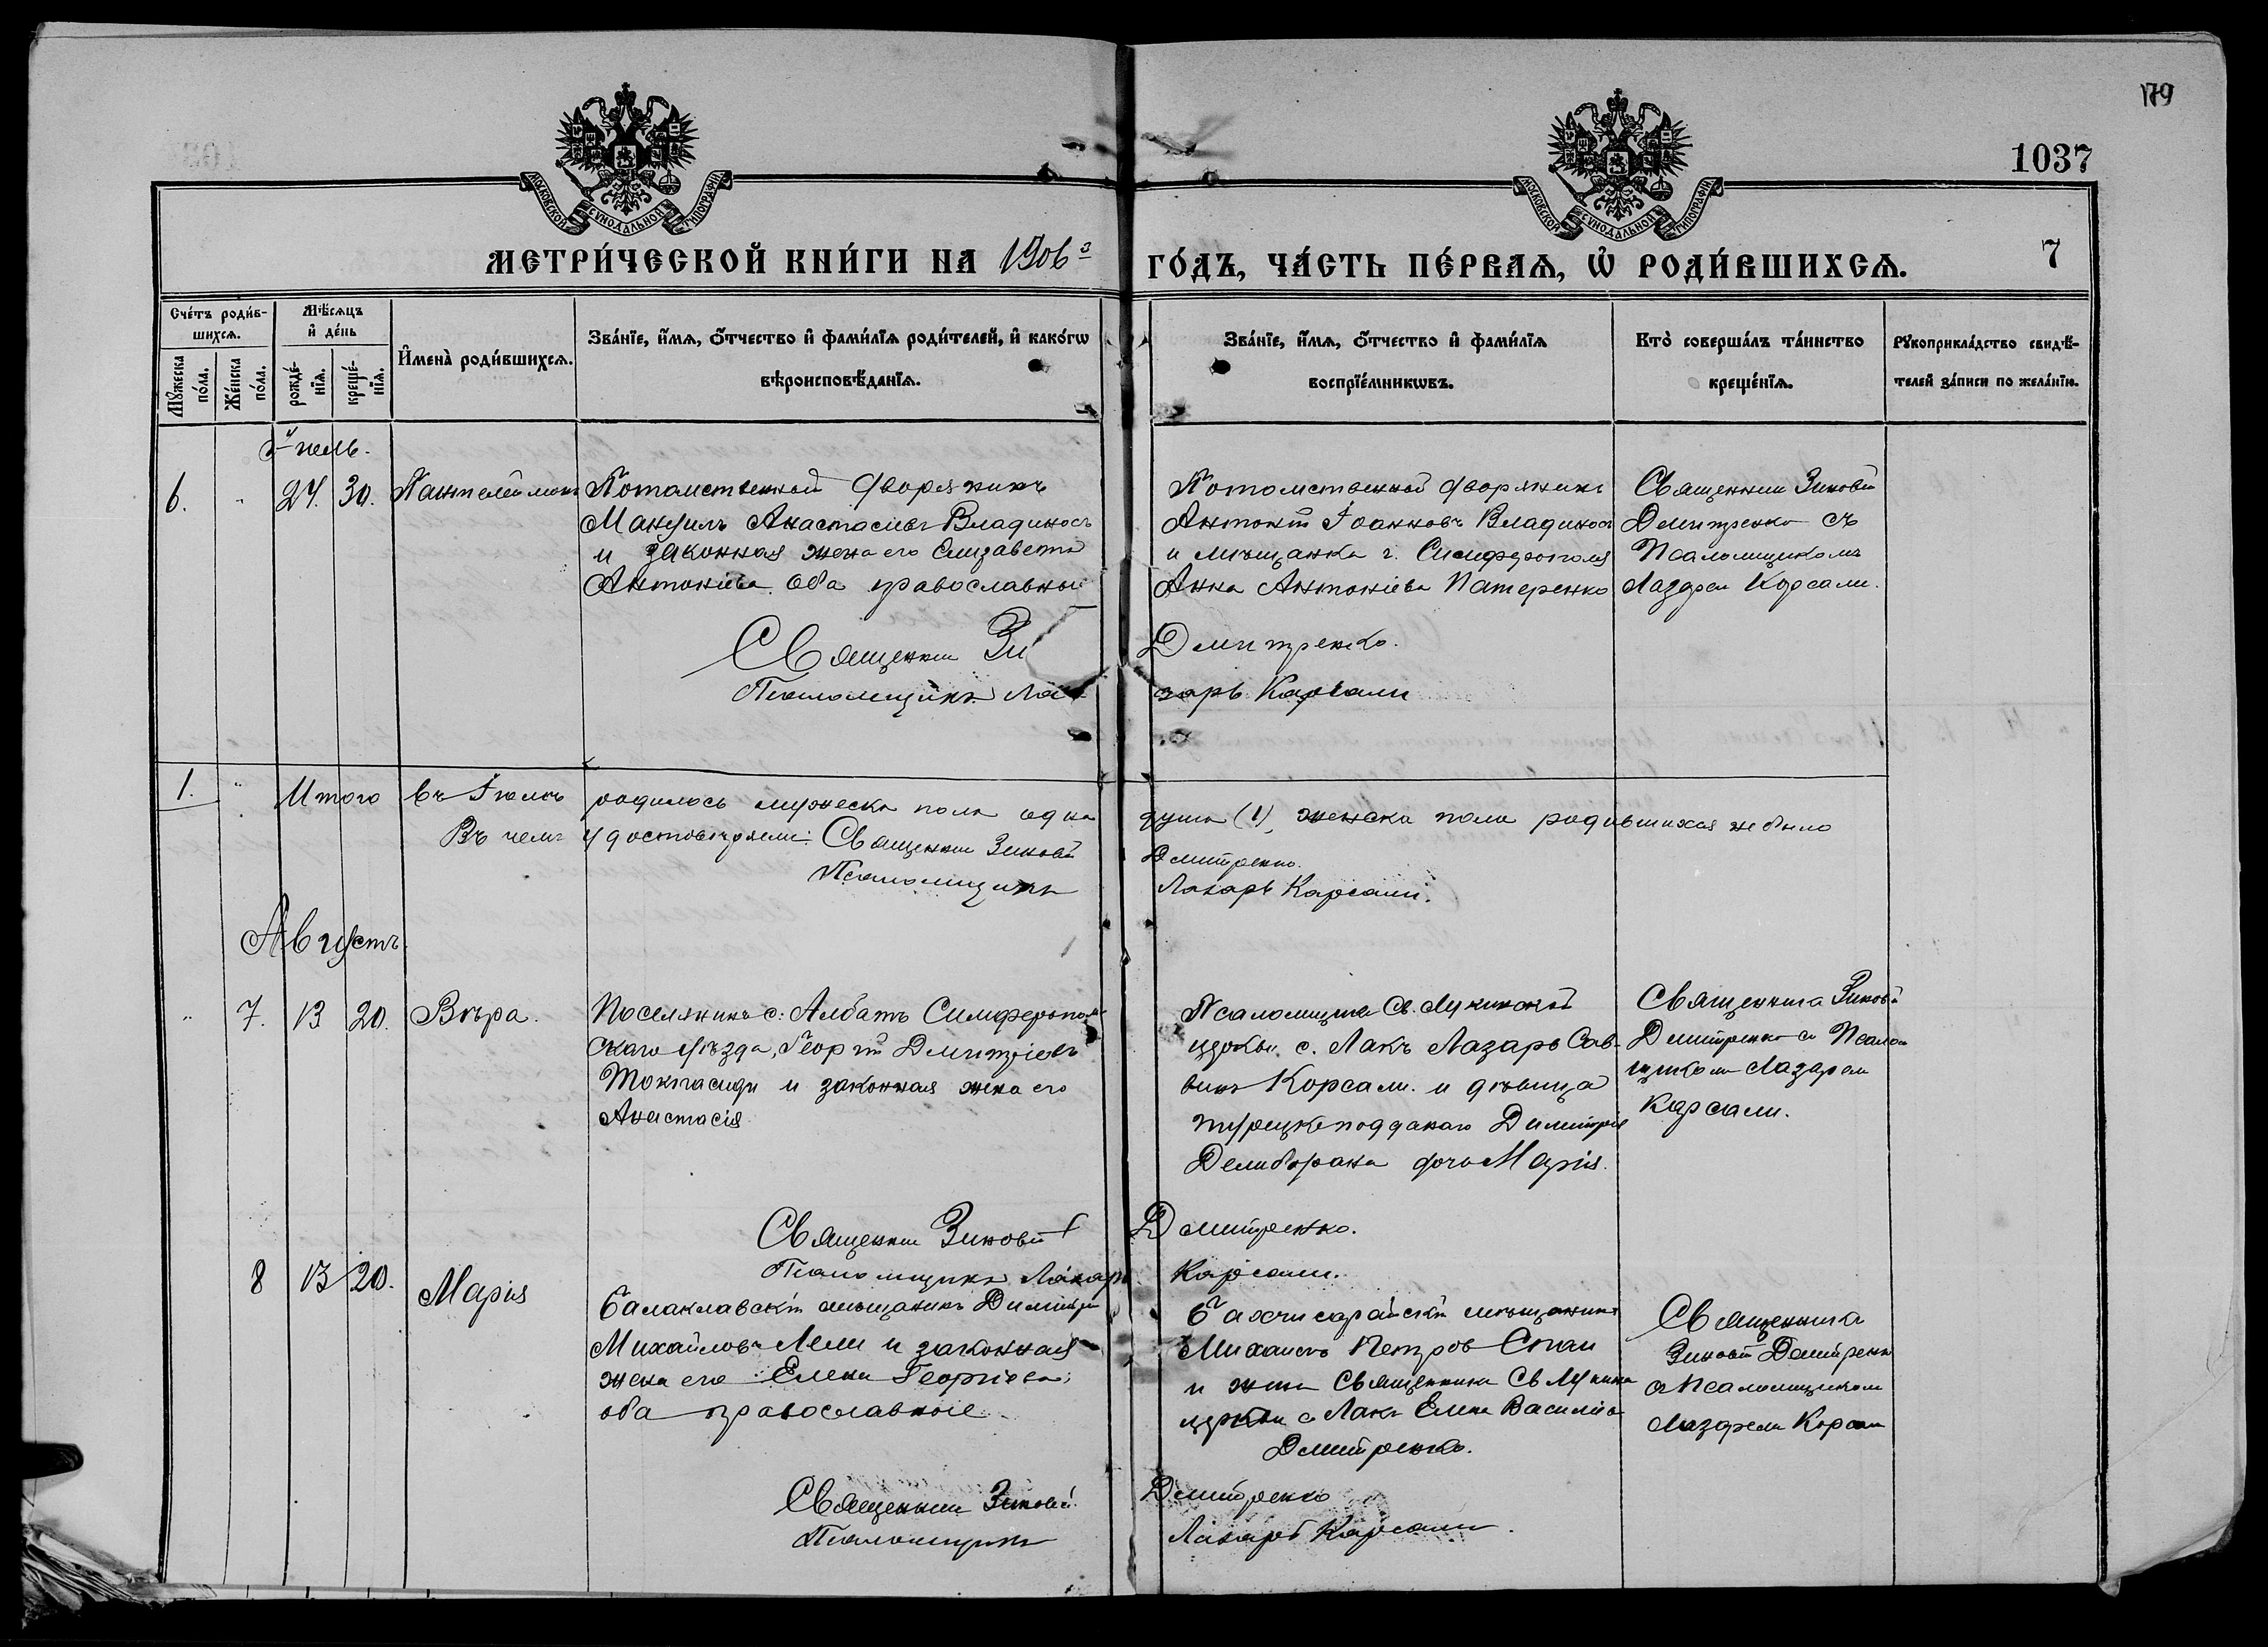 179
1037
7
МОСКОВСКОЙ СѴНОДАЛЬНОЙ ТИПОГРАФІИ
МОСКОВСКОЙ СѴНОДАЛЬНОЙ ТИПОГРАФІИ
МЕТРИ́ЧЕСКОЙ КНИ́ГИ НА 1906й ГО́ДЪ, ЧА́СТЬ ПЕ́РВАѦ, Ѡ҆ РОДИ́ВШИХСѦ.
Сче́тъ роди́в-
шихсѧ.
Мꙋ́жеска по́ла.
Же́нска по́ла.
Мѣ́сѧцъ и҆ де́нь
рожде́-нїѧ.
креще́-нїѧ.
И҆мена̀ роди́вшихсѧ.
Зва́нїе, и҆́мѧ, ѻ҆́тчество и҆ фами́лїѧ роди́телей, и҆ како́гѡ
вѣроисповѣ́данїѧ.
Зва́нїе, и҆́мѧ, ѻ҆́тчество и҆ фами́лїѧ
воспрїе́мникѡвъ.
Кто̀ соверша́лъ та́инство
креще́нїѧ.
Рꙋкоприкла́дство свидѣ́-
телей за́писи по жела́нїю.
6. " 24. 30. Пантелеймонъ
Потомственной дворянинъ
Мануилъ Анастасіевъ Владиносъ
и законная жена его Елизавета
Антоніева оба православные
Потомственной дворянинъ
Антоній Іоанновъ Владиносъ
и мѣщанка г. Симферополя
Анна Антоніева Патеренко
Священник Зиновій
Дмитренко съ
Псаломщикомъ
Лазарем Корсали.
Священник Зи Дмитренко.
Псаломщикъ Лазарь Карсали
1. " Итого въ Іюлѣ родилось мужеска пола одна душа (1), женска пола родившихся не было
Въ чемъ удостовѣряемъ: Священник Зиновій Дмитренко.
Псаломщикъ Лазарь Карсали.
Августъ.
" 7. 13 20. Вѣра.
Поселянинъ с. Албатъ Симферополь-
скаго уѣзда, Георгій Дмитріевъ
и законная жена его
Анастасія
Псаломщикъ Св. Лукинской
церкви с. Лакъ Лазарь Сав-
винъ Корсали. и дѣвица
турецкоподданаго Димитрія
дочь Марія.
Священника Зиновій
Дмитренко съ Псалом
щиком Лазарем
Карсали.
Священник Зиновій Дмитренко.
Псаломщикъ Лазарь Карсали.
8 13 20. Марія
Балаклавскій мѣщанинъ Димитрій
Михайловъ Лели и законная
жена его Елена Георгіева;
оба православные
Бахчисарайскій мѣщанинъ
Михаилъ Петров Спаи
и жена Священника Св Лукин
церкви с Лакъ Елена Васильева
Дмитренко.
Священника
Зиновій Дмитренко
съ Псаломщиком
Лазарем Корсали
Священник Зиновій Дмитренко
Псаломщикъ Лазарь Карсали.